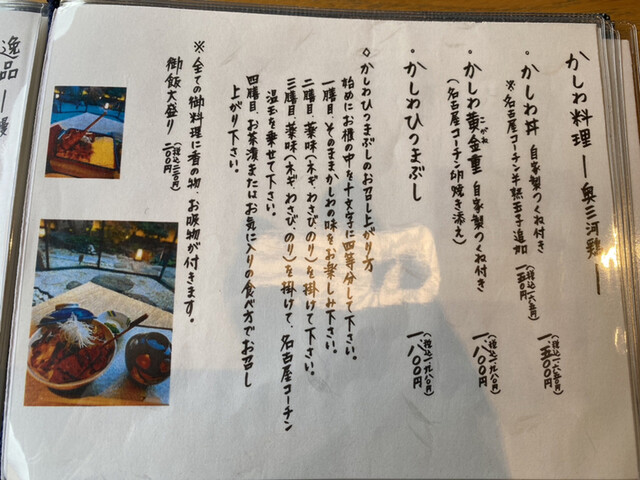 かしわ料理 ー奥三河鶏ー
・かしわ丼 自家製つくね付き 一、五〇〇円
(税込一、六五〇円)
※名古屋コーチン半熟玉子追加 一五〇円
(税込一六五円)
・かしわ黄金重 自家製つくね付き 一、八〇〇円
こがね
(税込一、九八〇円)
(名古屋コーチン卵焼き添え)
・かしわひつまぶし 一、八〇〇円
(税込一、九八〇円)
◇かしわひつまぶしのお召し上がり方
始めにお櫃の中を十文字に四等分して下さい。
一膳目、そのままかしわの味をお楽しみ下さい。
二膳目、薬味(ネギ、わさび、のり)を掛けて下さい。
三膳目、薬味(ネギ、わさび、のり)を掛けて、名古屋コーチン
温玉を乗せて下さい。
四膳目、お茶漬またはお気に入りの食べ方でお召し
上がり下さい。
※全ての御料理に香の物、お吸物が付きます。
御飯大盛り 二〇〇円
(税込二二〇円)
逸品ー